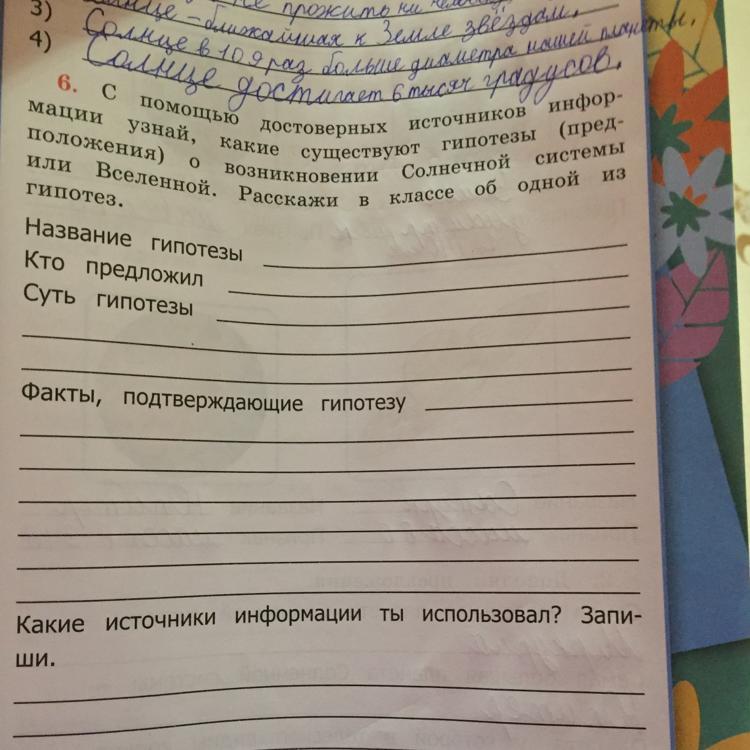 3) не прожить ни
4) Солнце - ближайшая к Земле звездам.
Солнце в 109 раз больше диаметра нашей планеты.
Солнце достигает 6 тысяч градусов.
6. С помощью достоверных источников инфор-
мации узнай, какие существуют гипотезы (пред-
положения) о возникновении Солнечной системы
или Вселенной. Расскажи в классе об одной из
гипотез.
Название гипотезы
Кто предложил
Суть гипотезы
Факты, подтверждающие гипотезу
Какие источники информации ты использовал? Запи-
ши.